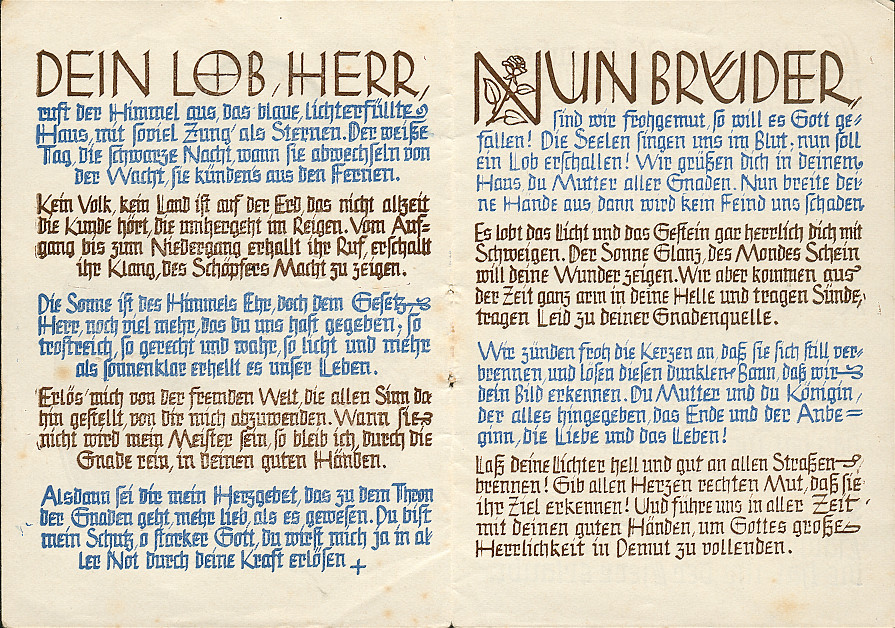 DEIN LOB, HERR,
ruft der Himmel aus, das blaue, lichterfüllte
Haus, mit soviel Zung' als Sternen. Der weiße
Tag, die schwarze Nacht, wann sie abwechseln von
der Wacht, sie künden's aus den Fernen.
Kein Volk, kein Land ist auf der Erd, das nicht allzeit
die Kunde hört, die umhergeht im Reigen. Vom Auf=
gang bis zum Niedergang erhallt ihr Ruf, erschallt
ihr Klang, des Schöpfers Macht zu zeigen.
Die Sonne ist des Himmels Ehr, doch dein Gesetz,
Herr, noch viel mehr, das du uns hast gegeben, so
trostreich, so gerecht und wahr, so licht und mehr
als sonnenklar erhellt es unser Leben.
Erlös' mich von der fremden Welt, die allen Sinn da
hin gestellt, von dir mich abzuwenden. Wann sie
nicht wird mein Meister sein, so bleib ich, durch die
Gnade rein, in deinen guten Händen.
Alsdann sei dir mein Herzgebet, das zu dem Thron
der Gnaden geht, mehr lieb, als es gewesen. Du bist
mein Schutz, o starker Gott, du wirst mich ja in al=
ler Not durch deine Kraft erlösen
NUN BRÜDER,
sind wir frohgemut, so will es Gott ge=
fallen! Die Seelen singen uns im Blut, nun soll
ein Lob erschallen! Wir grüßen dich in deinem
Haus du Mutter aller Gnaden. Nun breite dei=
ne Hände aus, dann wird kein Feind uns schaden.
Es lobt das Licht und das Gestein gar herrlich dich mit
Schweigen. Der Sonne Glanz, des Mondes Schein
will deine Wunder zeigen. Wir aber kommen aus
der Zeit ganz arm in deine Helle und tragen Sünde,
tragen Leid zu deiner Gnadenquelle.
Wir zünden froh die Kerzen an, daß sie sich still ver=
brennen, und lösen diesen dunklen Bann, daß wir
dein Bild erkennen. Du Mutter und du Königin,
der alles hingegeben, das Ende und der Anbe=
ginn, die Liebe und das Leben!
Laß deine Lichter hell und gut an allen Straßen
brennen! Gib allen Herzen rechten Mut, daß sie
ihr Ziel erkennen! Und führe uns in aller Zeit
mit deinen guten Händen, um Gottes große
Herrlichkeit in Demut zu vollenden.